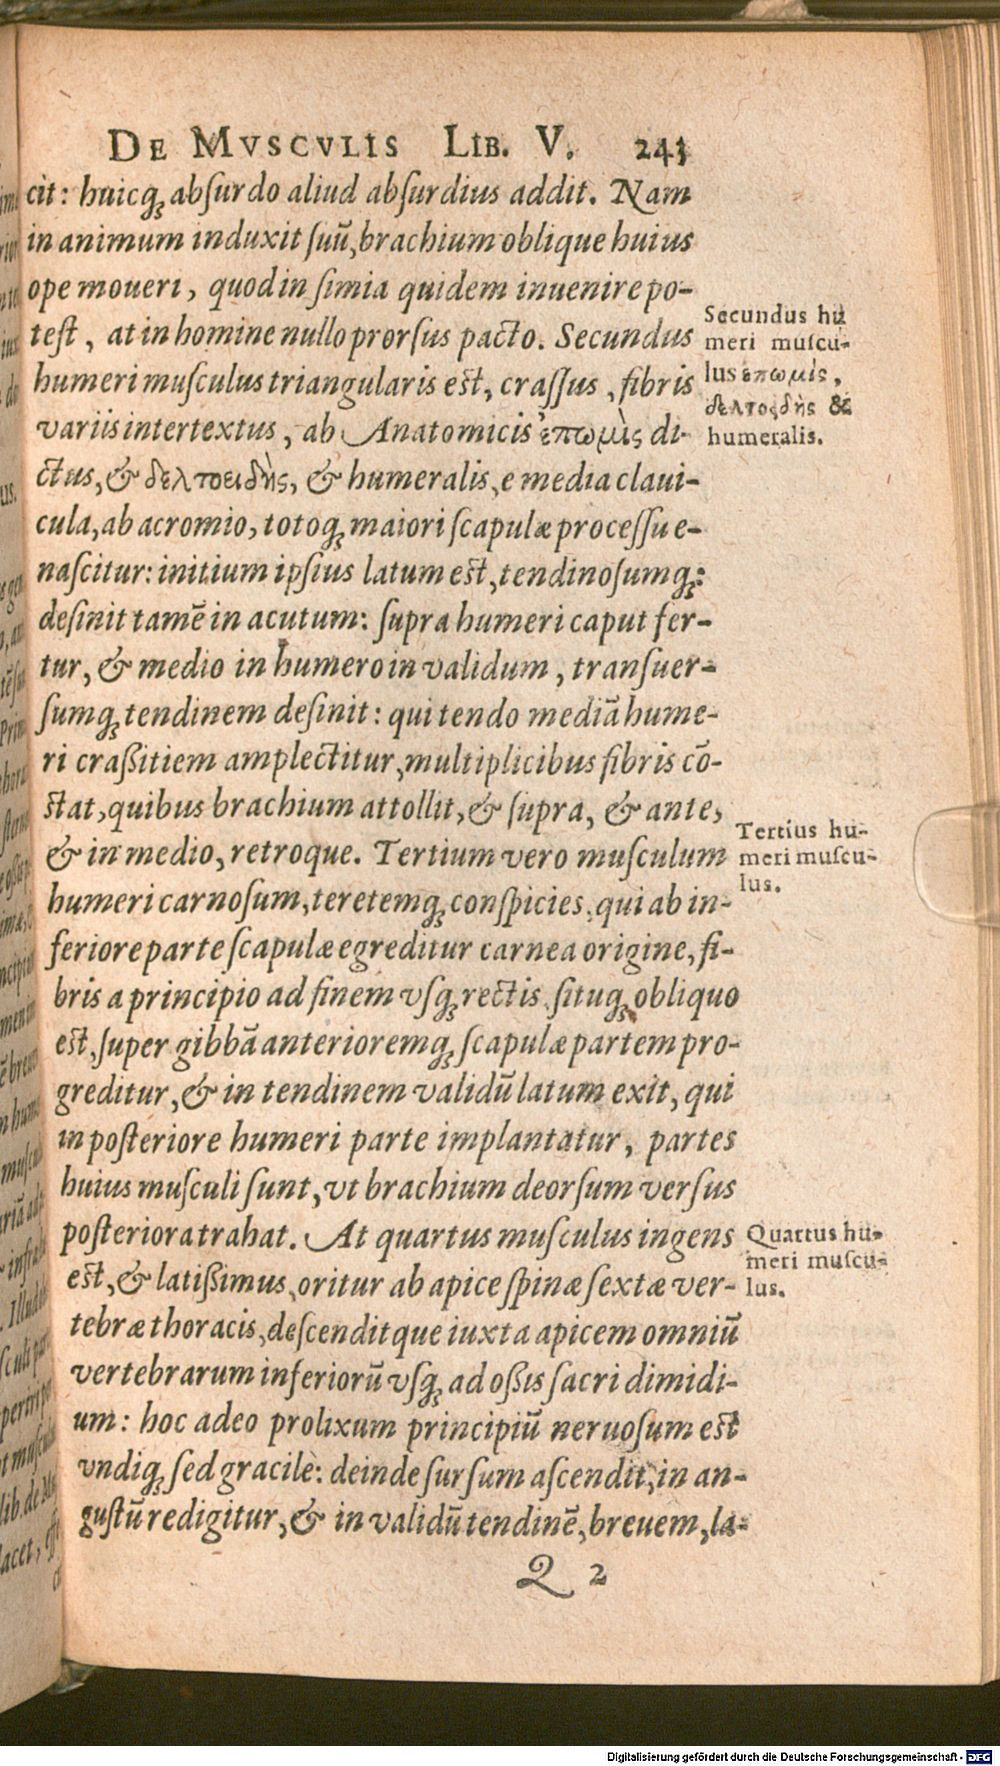 DE MVSCVLIS LIB. V. 243
cit: huicq́ue absurdo aliud absurdius addit. Nam
in animum induxit suũ, brachium oblique huius
ope moueri, quod in simia quidem inuenire po-
test, at in homine nullo prorsus pacto. Secundus
humeri musculus triangularis est, crassus, fibris
variis intertextus, ab Anatomicis ἐπωμὶς di-
ctus, & δελτοειδὴς, & humeralis, e media claui-
cula, ab acromio, totoq; maiori scapulæ processu e-
nascitur: initium ipsius latum est, tendinosumq;:
desinit tamẽ in acutum: supra humeri caput fer-
tur, & medio in humero in validum, transuer-
sumq; tendinem desinit: qui tendo mediã hume-
ri craßitiem amplectitur, multiplicibus fibris cõ-
stat, quibus brachium attollit, & supra, & ante,
& in medio, retroque. Tertium vero musculum
humeri carnosum, teretemq; conspicies, qui ab in-
feriore parte scapulæ egreditur carnea origine, fi-
bris a principio ad finem vsq; rectis, situq; obliquo
est, super gibbã anterioremq; scapulæ partem pro-
greditur, & in tendinem validũ latum exit, qui
in posteriore humeri parte implantatur, partes
huius musculi sunt, vt brachium deorsum versus
posteriora trahat. At quartus musculus ingens
est, & latißimus, oritur ab apice spinæ sextæ ver-
tebræ thoracis, descenditque iuxta apicem omniũ
vertebrarum inferiorũ vsq; ad oßis sacri dimidi-
um: hoc adeo prolixum principiũ neruosum est
vndiq; sed gracile: deinde sursum ascendit, in an-
gustũ redigitur, & in validũ tendinẽ, breuem, la-
Q 2
Secundus hu
meri muscu-
lus ἐπωμὶς,
δελτοειδὴς &
humeralis.
Tertius hu-
meri muscu-
lus.
Quartus hu-
meri muscu-
lus.
Digitalisierung gefördert durch die Deutsche Forschungsgemeinschaft - DFG